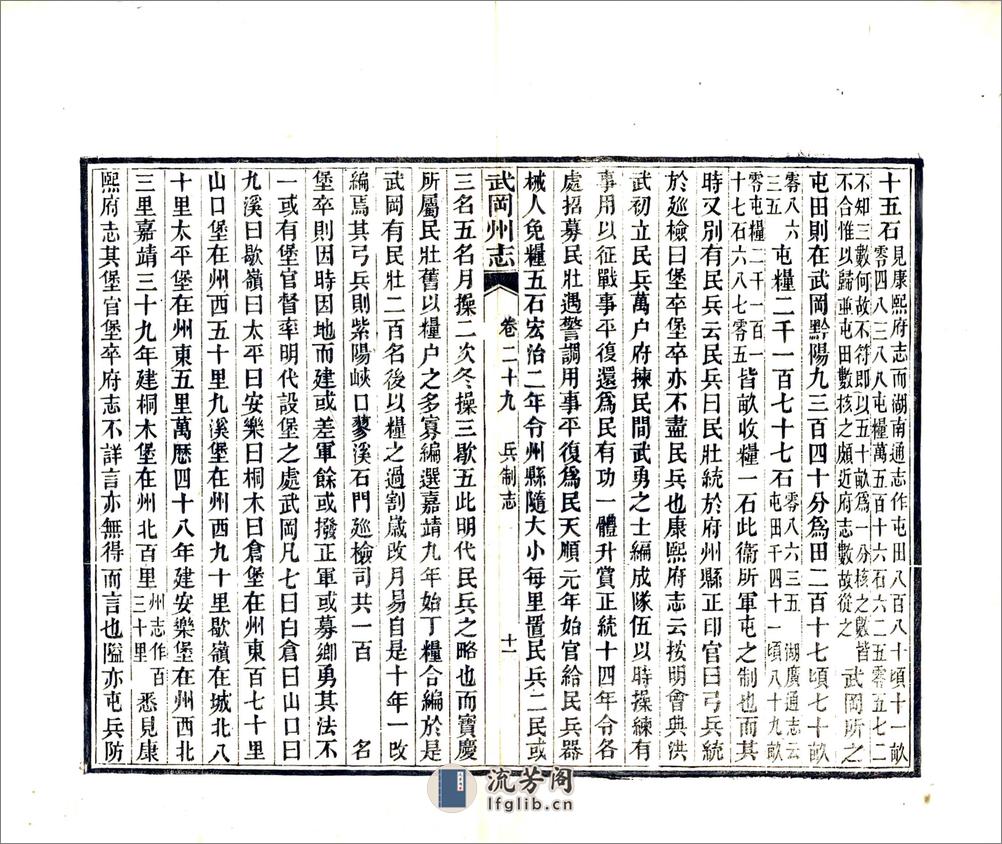 十五石見康熙府志而湖南通志作屯田八百八十頃十一畝
零四八三八八屯糧萬五百十六石六二五零五七二
不知三數何故不符即以五十畝爲一分核之數皆
不合惟以歸並屯田數核之頗近府志數故從之武岡所之
屯田則在武岡黔陽九三百四十分爲田二百十七頃七十畝
零八六三五屯糧二千一百七十七石零八六三五湖廣通志云屯田千四十一頃八十九畝
零屯糧二千一百一十七石六八七零五皆畝收糧一石此衞所軍屯之制也而其
時又別有民兵云民兵曰民壯統於府州縣正印官曰弓兵統
於廵檢曰堡卒堡卒亦不盡民兵也康熙府志云按明會典洪
武初立民兵萬户府揀民間武勇之士編成隊伍以時操練有
事用以征戰事平復還爲民有功一體升賞正統十四年令各
處招募民壯遇警調用事平復爲民天順元年始官給民兵器
械人免糧五石宏治二年令州縣隨大小每里置民兵二民或
武岡州志 卷二十九 兵制志 十一
三名五名月操二次冬操三歇五此明代民兵之略也而寶慶
所屬民壯舊以糧户之多寡編選嘉靖九年始丁糧合編於是
武岡有民壯二百名後以糧之過割歲改月易自是十年一改
編焉其弓兵則紫陽峽口蓼溪石門廵檢司共一百 名
堡卒則因時因地而建或差軍餘或撥正軍或募鄉勇其法不
一或有堡官督率明代設堡之處武岡凡七曰白倉曰山口曰
九溪曰歇嶺曰太平曰安樂曰桐木曰倉堡在州東百七十里
山口堡在州西五十里九溪堡在州西九十里歇嶺在城北八
十里太平堡在州東五里萬厯四十八年建安樂堡在州西北
三里嘉靖三十九年建桐木堡在州北百里州志作百三十里悉見康
熙府志其堡官堡卒府志不詳言亦無得而言也隘亦屯兵防
流芳阁
lfglib.cn